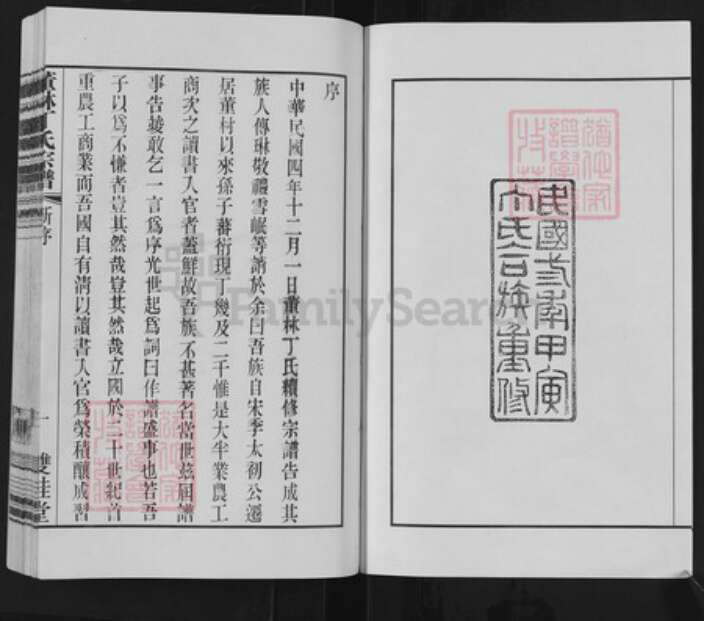 民國三年甲寅
丁氏合族重修
序
中華民國四年十二月一日董林丁氏續修宗譜告成其
族人傳琳敬禮雪岷等請於余曰吾族自宋季太初公遷
居董村以來孫子蕃衍現丁幾及二千惟是大半業農工
商次之讀書入官者蓋鮮故吾族不甚著名當世茲屆譜
事告竣敢乞一言爲序光世起爲詞曰作譜盛事也若吾
子以爲不慊者豈其然哉豈其然哉立國於二十世紀首
重農工商業而吾國自有清以讀書入官爲榮積釀成習
董林丁氏宗譜 新序 一 雙桂堂
FamilySearch